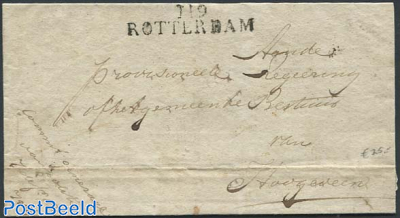 119
ROTTERDAM
Aan de
Provisioneele Regeering
of het gemeende Bestuur
van
Hoogeveen
€25.-
PostBeeld